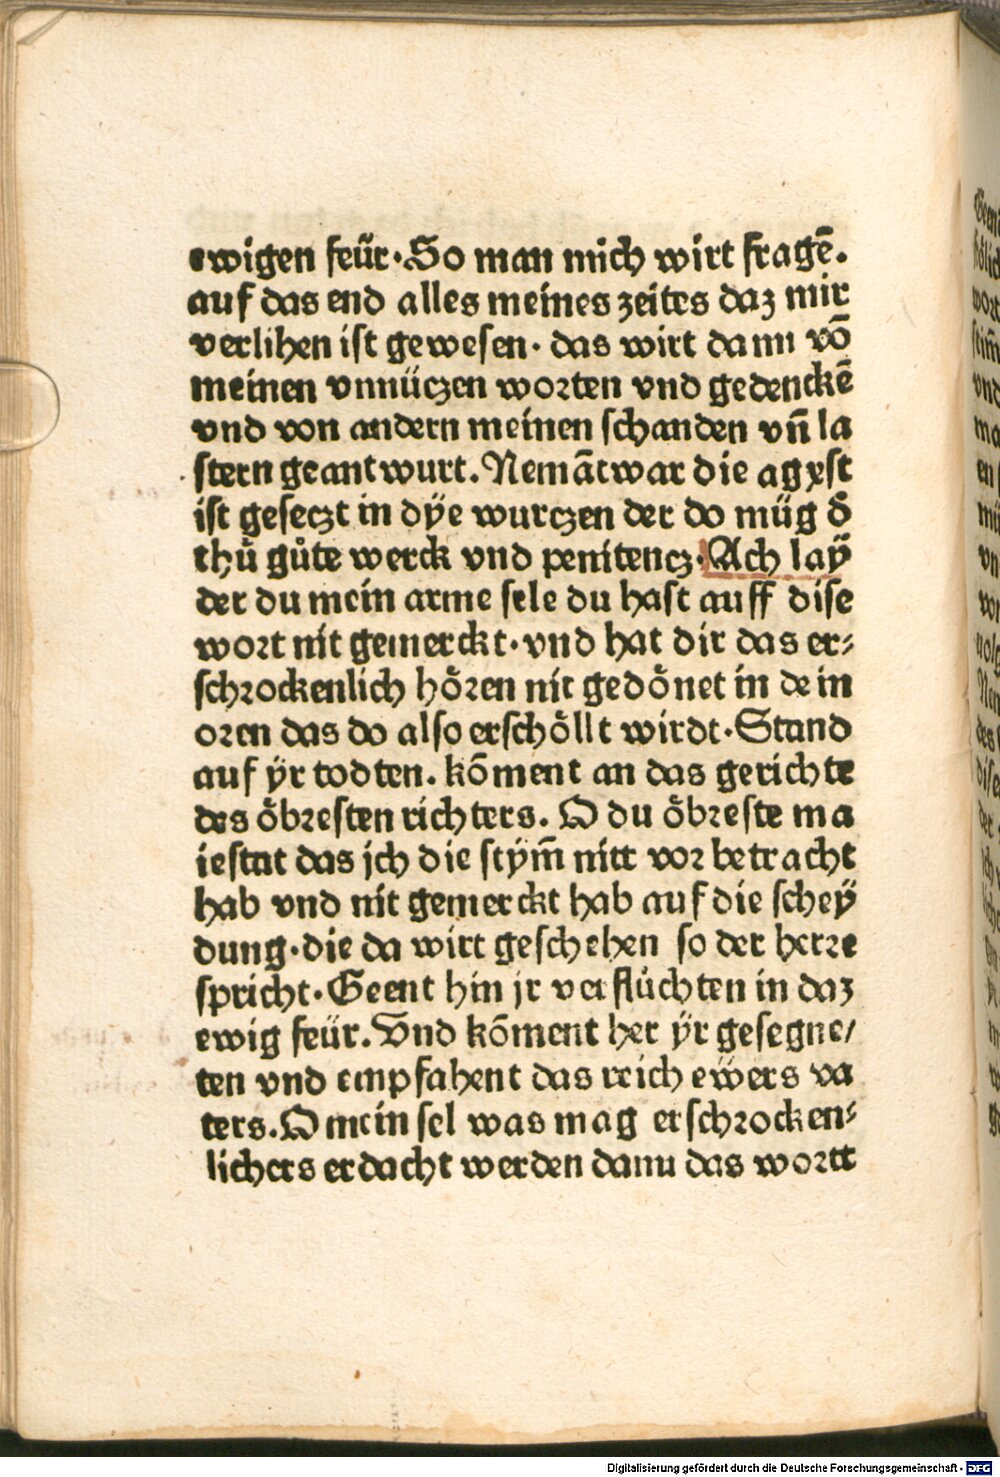 ewigen feür. So man mich wirt fragē.
auf das end alles meines zeites daz mir
verlihen ist gewesen. das wirt dann vō
meinen vnnüczen worten vnd gedenckē
vnd von andern meinen schanden vn̄ la
stern geantwurt. Nemāt war die agxst
ist geseczt in dÿe wurczen der do müg d̄
thůͤ gůte werck vnd penitencz. Ach laÿ
der du mein arme sele du hast auff dise
wort nit gemerckt. vnd hat dir das er⸗
schrockenlich hoͤren nit gedoͤnet in dein
oren das do also erschoͤllt wirdt. Stand
auf ÿr todten. kōment an das gerichte
des oͤbresten richters. O du oͤbreste ma
iestat das jch die stÿm̄ nitt vor betracht
hab vnd nit gemerckt hab auf die scheÿ
dung. die da wirt geschehen so der herre
spricht. Geent hin jr verflůchten in daz
ewig feür. Vnd kōment her ÿr gesegne/
ten vnd empfahent das reich ewers va
ters. O mein sel was mag erschrocken⸗
lichers erdacht werden dann das wortt
Digitalisierung gefördert durch die Deutsche Forschungsgemeinschaft - DFG